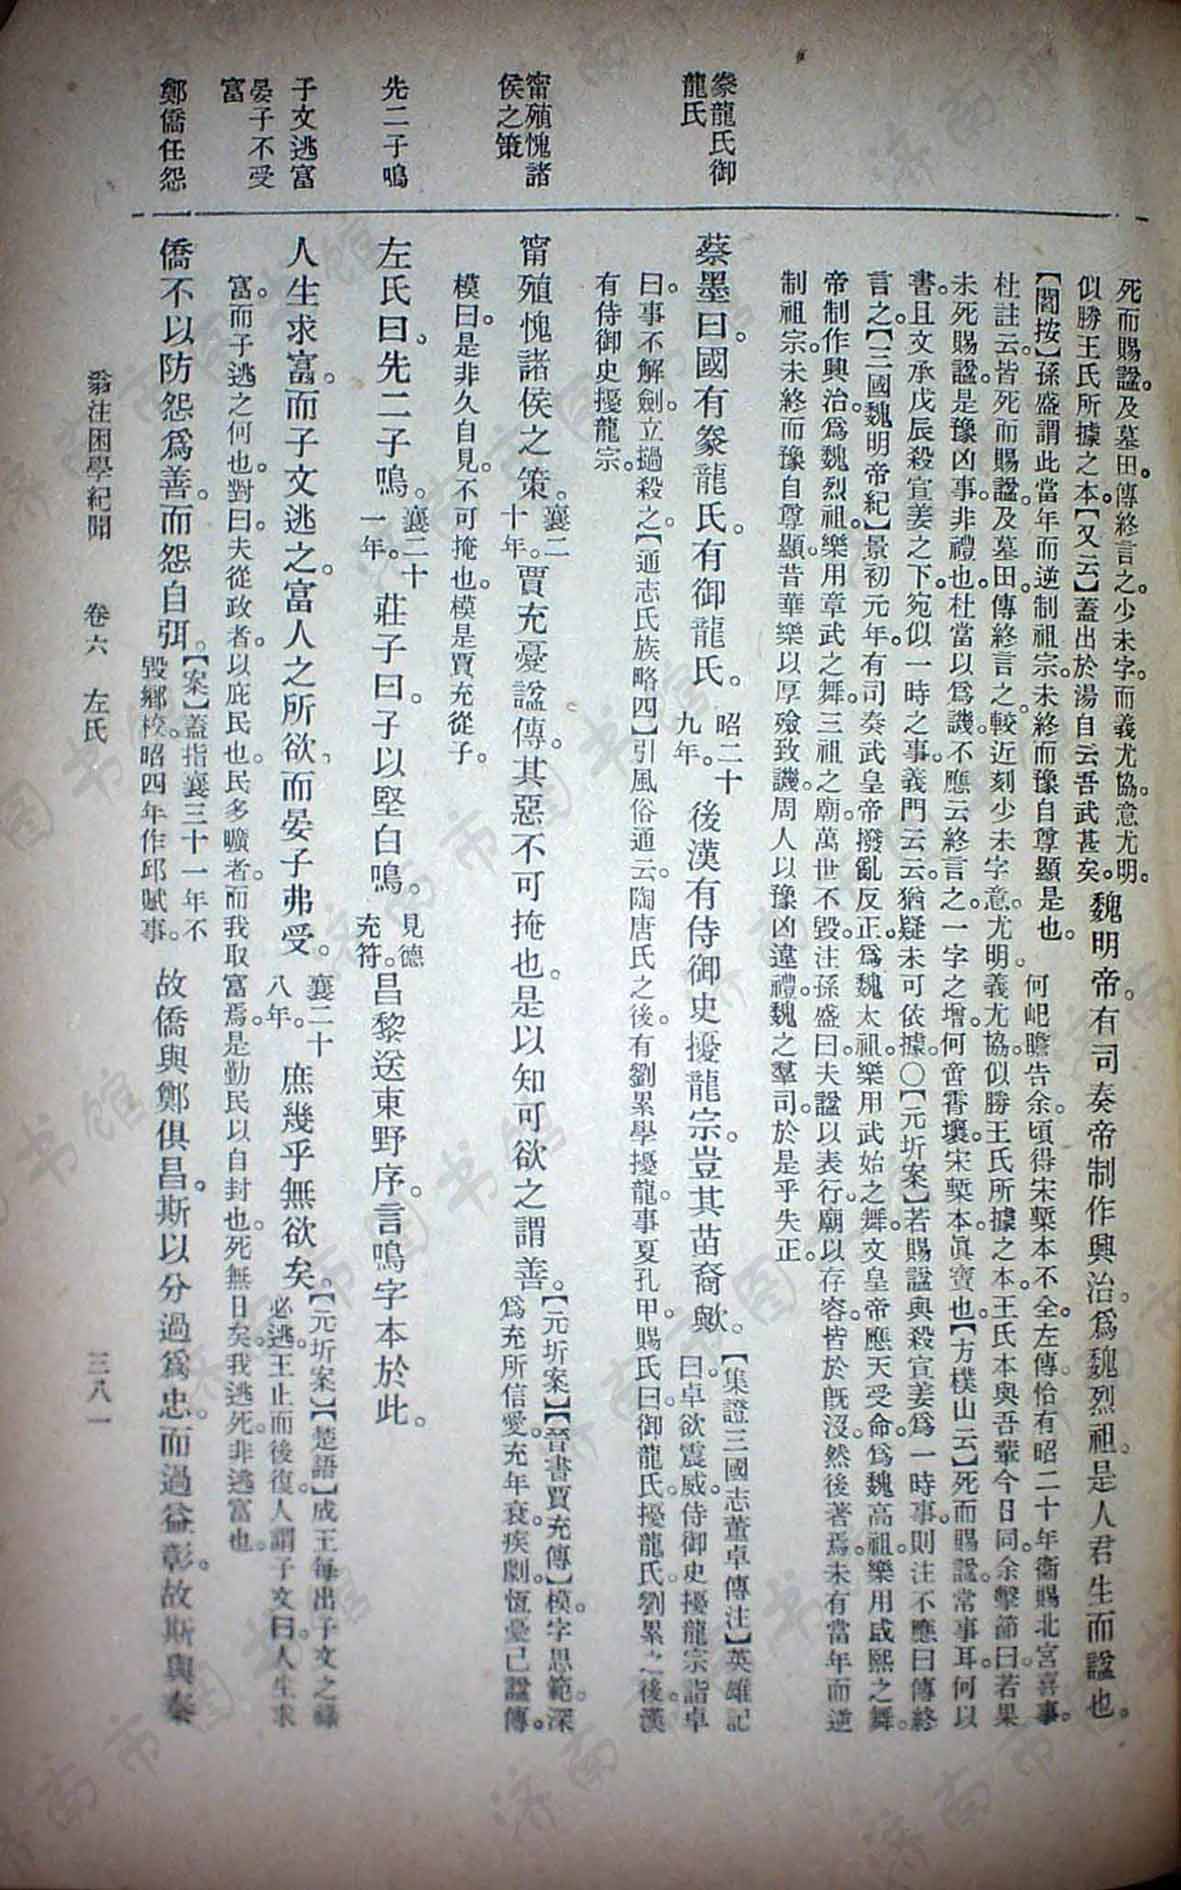 豢龍氏御
龍氏
甯殖愧諸
侯之策
先二子鳴
子文逃富
晏子不受
富
鄭僑任怨
死而賜諡。及墓田。傳終言之。少未字。而義尤協。意尤明。
似勝王氏所據之本。【又云】蓋出於湯自云吾武甚矣。
魏明帝。有司奏帝制作興治。爲魏烈祖。是人君生而諡也。
【閻按】孫盛謂此當年而逆制祖宗。未終而豫自尊顯是也。
何屺瞻告余。頃得宋槧本不全左傳。恰有昭二十年衞賜北宮喜事。
杜註云。皆死而賜諡。及墓田。傳終言之。較近刻少未字。意尤明。義尤協。似勝王氏所據之本。王氏本與吾輩今日同。余擊節曰。若果
未死賜諡。是豫凶事。非禮也。杜當以爲譏。不應云終言之。一字之增。何啻霄壤。宋槧本。眞寶也。【方樸山云】死而賜諡。常事耳。何以
書。且文承戊辰殺宣姜之下。宛似一時之事。義門云云。猶疑未可依據。○【元圻案】若賜諡與殺宣姜。爲一時事。則注不應曰傳終
言之。【三國魏明帝紀】景初元年。有司奏武皇帝撥亂反正。爲魏太祖。樂用武始之舞。文皇帝應天受命。爲魏高祖。樂用咸熙之舞。
帝制作興治。爲魏烈祖。樂用章武之舞。三祖之廟。萬世不毀。注孫盛曰。夫諡以表行。廟以存容。皆於既沒然後著焉。未有當年而逆
制祖宗。未終而豫自尊顯。昔華樂以厚殮致譏。周人以豫凶違禮。魏之羣司。於是乎失正。
蔡墨曰。國有豢龍氏。有御龍氏。昭二十
九年。後漢有侍御史擾龍宗。豈其苗裔歟。
【集證三國志董卓傳注】英雄記
曰。卓欲震威。侍御史擾龍宗詣卓
曰。事不解劍。立撾殺之。【通志氏族略四】引風俗通云。陶唐氏之後。有劉累學擾龍。事夏孔甲。賜氏曰。御龍氏。擾龍氏劉累之後。漢
有侍御史擾龍宗。
甯殖愧諸侯之策。襄二
十年。賈充憂諡傳。其惡不可掩也。是以知可欲之謂善。
【元圻案】【晉書賈充傳】模字思範。深
爲充所信愛。充年衰疾劇。恆憂己諡傳。
模曰。是非久自見。不可掩也。模是賈充從子。
左氏曰。先二子鳴。襄二十
一年。莊子曰。子以堅白鳴。見德
充符。昌黎送東野序。言鳴字本於此。
人生求富。而子文逃之。富人之所欲。而晏子弗受。襄二十
八年。庶幾乎無欲矣。
【元圻案】【楚語】成王每出子文之祿
必逃。王止而後復。人謂子文曰。人生求
富。而子逃之何也。對曰。夫從政者。以庇民也。民多曠者。而我取富焉。是勤民以自封也。死無日矣。我逃死。非逃富也。
僑不以防怨爲善。而怨自弭。【案】蓋指襄三十一年不
毀鄉校。昭四年作邱賦事。故僑與鄭俱昌。斯以分過爲忠。而過益彰。故斯與秦
翁注困學紀聞　卷六　左氏　三八一